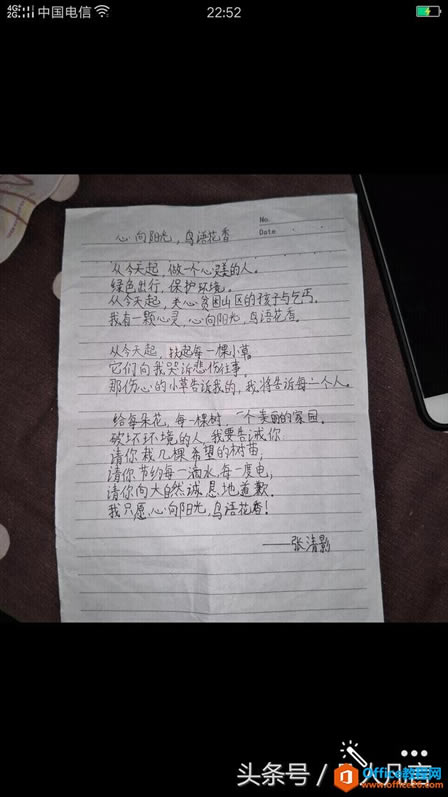 4G 2G 中国电信 22:52
No.
Date
心向阳光,鸟语花香
从今天起,做一个心灵美的人。
绿色出行,保护环境。
从今天起,关心贫困山区的孩子与乞丐。
我有一颗心灵,心向阳光,鸟语花香。
从今天起,扶起每一棵小草。
它们向我哭诉悲伤往事。
那伤心的小草告诉我的,我将告诉每一个人。
给每朵花,每一棵树,一个美丽的家园。
破坏环境的人,我要告诫你
请你栽几棵希望的树苗,
请你节约每一滴水,每一度电,
请你向大自然诚恳地道歉.
我只愿,心向阳光,鸟语花香!
——张清影
头条号/
人凡言
Office教程网
www.office26.com